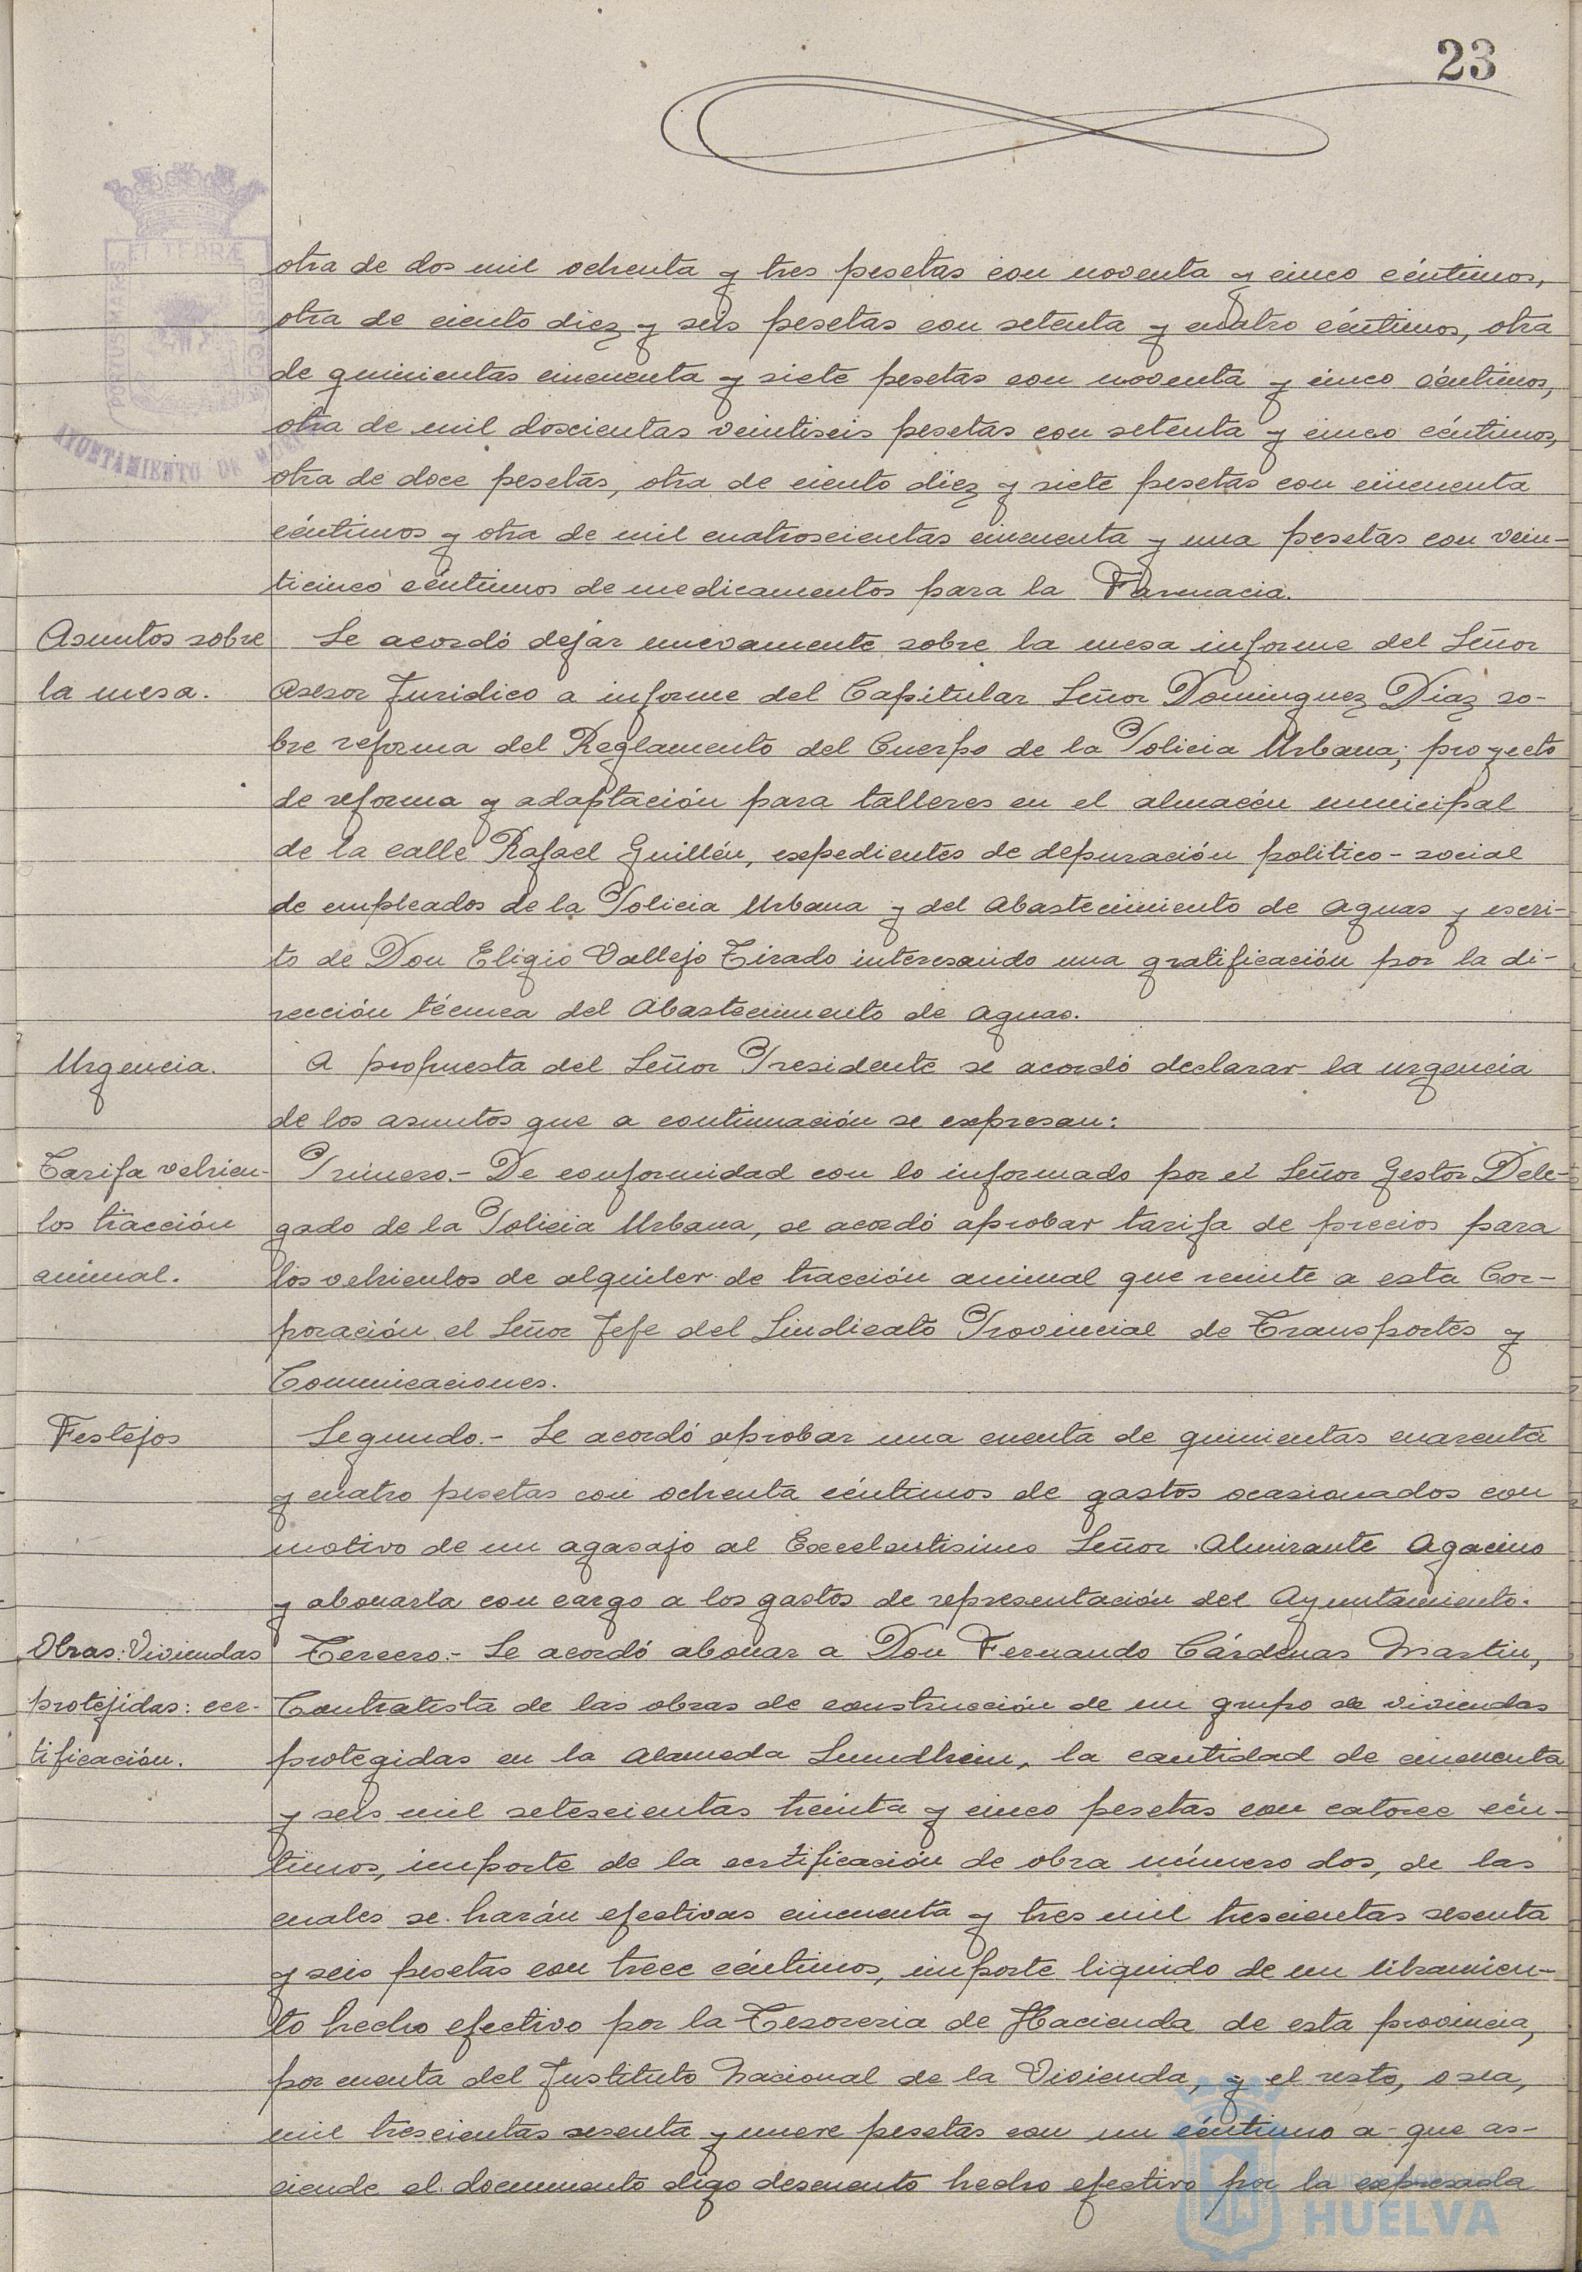 23
ET TERRÆ
PORTUS MARIS
CUSTODIA
AYUNTAMIENTO DE
otra de dos mil ochenta y tres pesetas con noventa y cinco céntimos,
otra de ciento diez y seis pesetas con setenta y cuatro céntimos, otra
de quinientas cincuenta y siete pesetas con noventa y cinco céntimos,
otra de mil doscientas veintiseis pesetas con setenta y cinco céntimos,
otra de doce pesetas, otra de ciento diez y siete pesetas con cincuenta
céntimos y otra de mil cuatroscientas cincuenta y una pesetas con vein-
ticinco céntimos de medicamentos para la Farmacia.
Asuntos sobre
la mesa.
Se acordó dejar nuevamente sobre la mesa informe del Señor
Asesor Juridico a informe del Capitular Señor Dominguez Diaz so-
bre reforma del Reglamento del Cuerpo de la Policia Urbana; proyecto
de reforma y adaptación para talleres en el almacén municipal
de la calle Rafael Guillén, expedientes de depuración politico-social
de empleados de la Policia Urbana y del Abastecimiento de Aguas y escri-
to de Don Eligio Vallejo Tirado interesando una gratificación por la di-
rección técnica del Abastecimiento de Aguas.
Urgencia.
A propuesta del Señor Presidente se acordó declarar la urgencia
de los asuntos que a continuación se expresan:
Tarifa vehicu-
los tracción
animal.
Primero.- De conformidad con lo informado por el Señor Gestor Dele-
gado de la Policia Urbana, se acordó aprobar tarifa de precios para
los vehiculos de alquiler de tracción animal que remite a esta Cor-
poración el Señor Jefe del Sindicato Provincial de Transportes y
Comunicaciones.
Festejos
Segundo.- Se acordó aprobar una cuenta de quinientas cuarenta
y cuatro pesetas con ochenta céntimos de gastos ocasionados con
motivo de un agasajo al Excelentisimo Señor Almirante Agacino
y abonarla con cargo a los gastos de representación del Ayuntamiento.
Obras: Viviendas
protejidas: cer-
tificación.
Tercero.- Se acordó abonar a Don Fernando Cárdenas Martin,
Contratista de las obras de construcción de un grupo de viviendas
protegidas en la Alameda Sundheim, la cantidad de cincuenta
y seis mil setescientas treinta y cinco pesetas con catorce cén-
timos, importe de la certificación de obra número dos, de las
cuales se harán efectivas cincuenta y tres mil trescientas sesenta
y seis pesetas con trece céntimos, importe liquido de un libramien-
to hecho efectivo por la Tesoreria de Hacienda de esta provincia,
por cuenta del Instituto Nacional de la Vivienda, y el resto, o sea,
mil trescientas sesenta y nueve pesetas con un céntimo a que as-
ciende el documento digo descuento hecho efectivo por la expresada
HUELVA